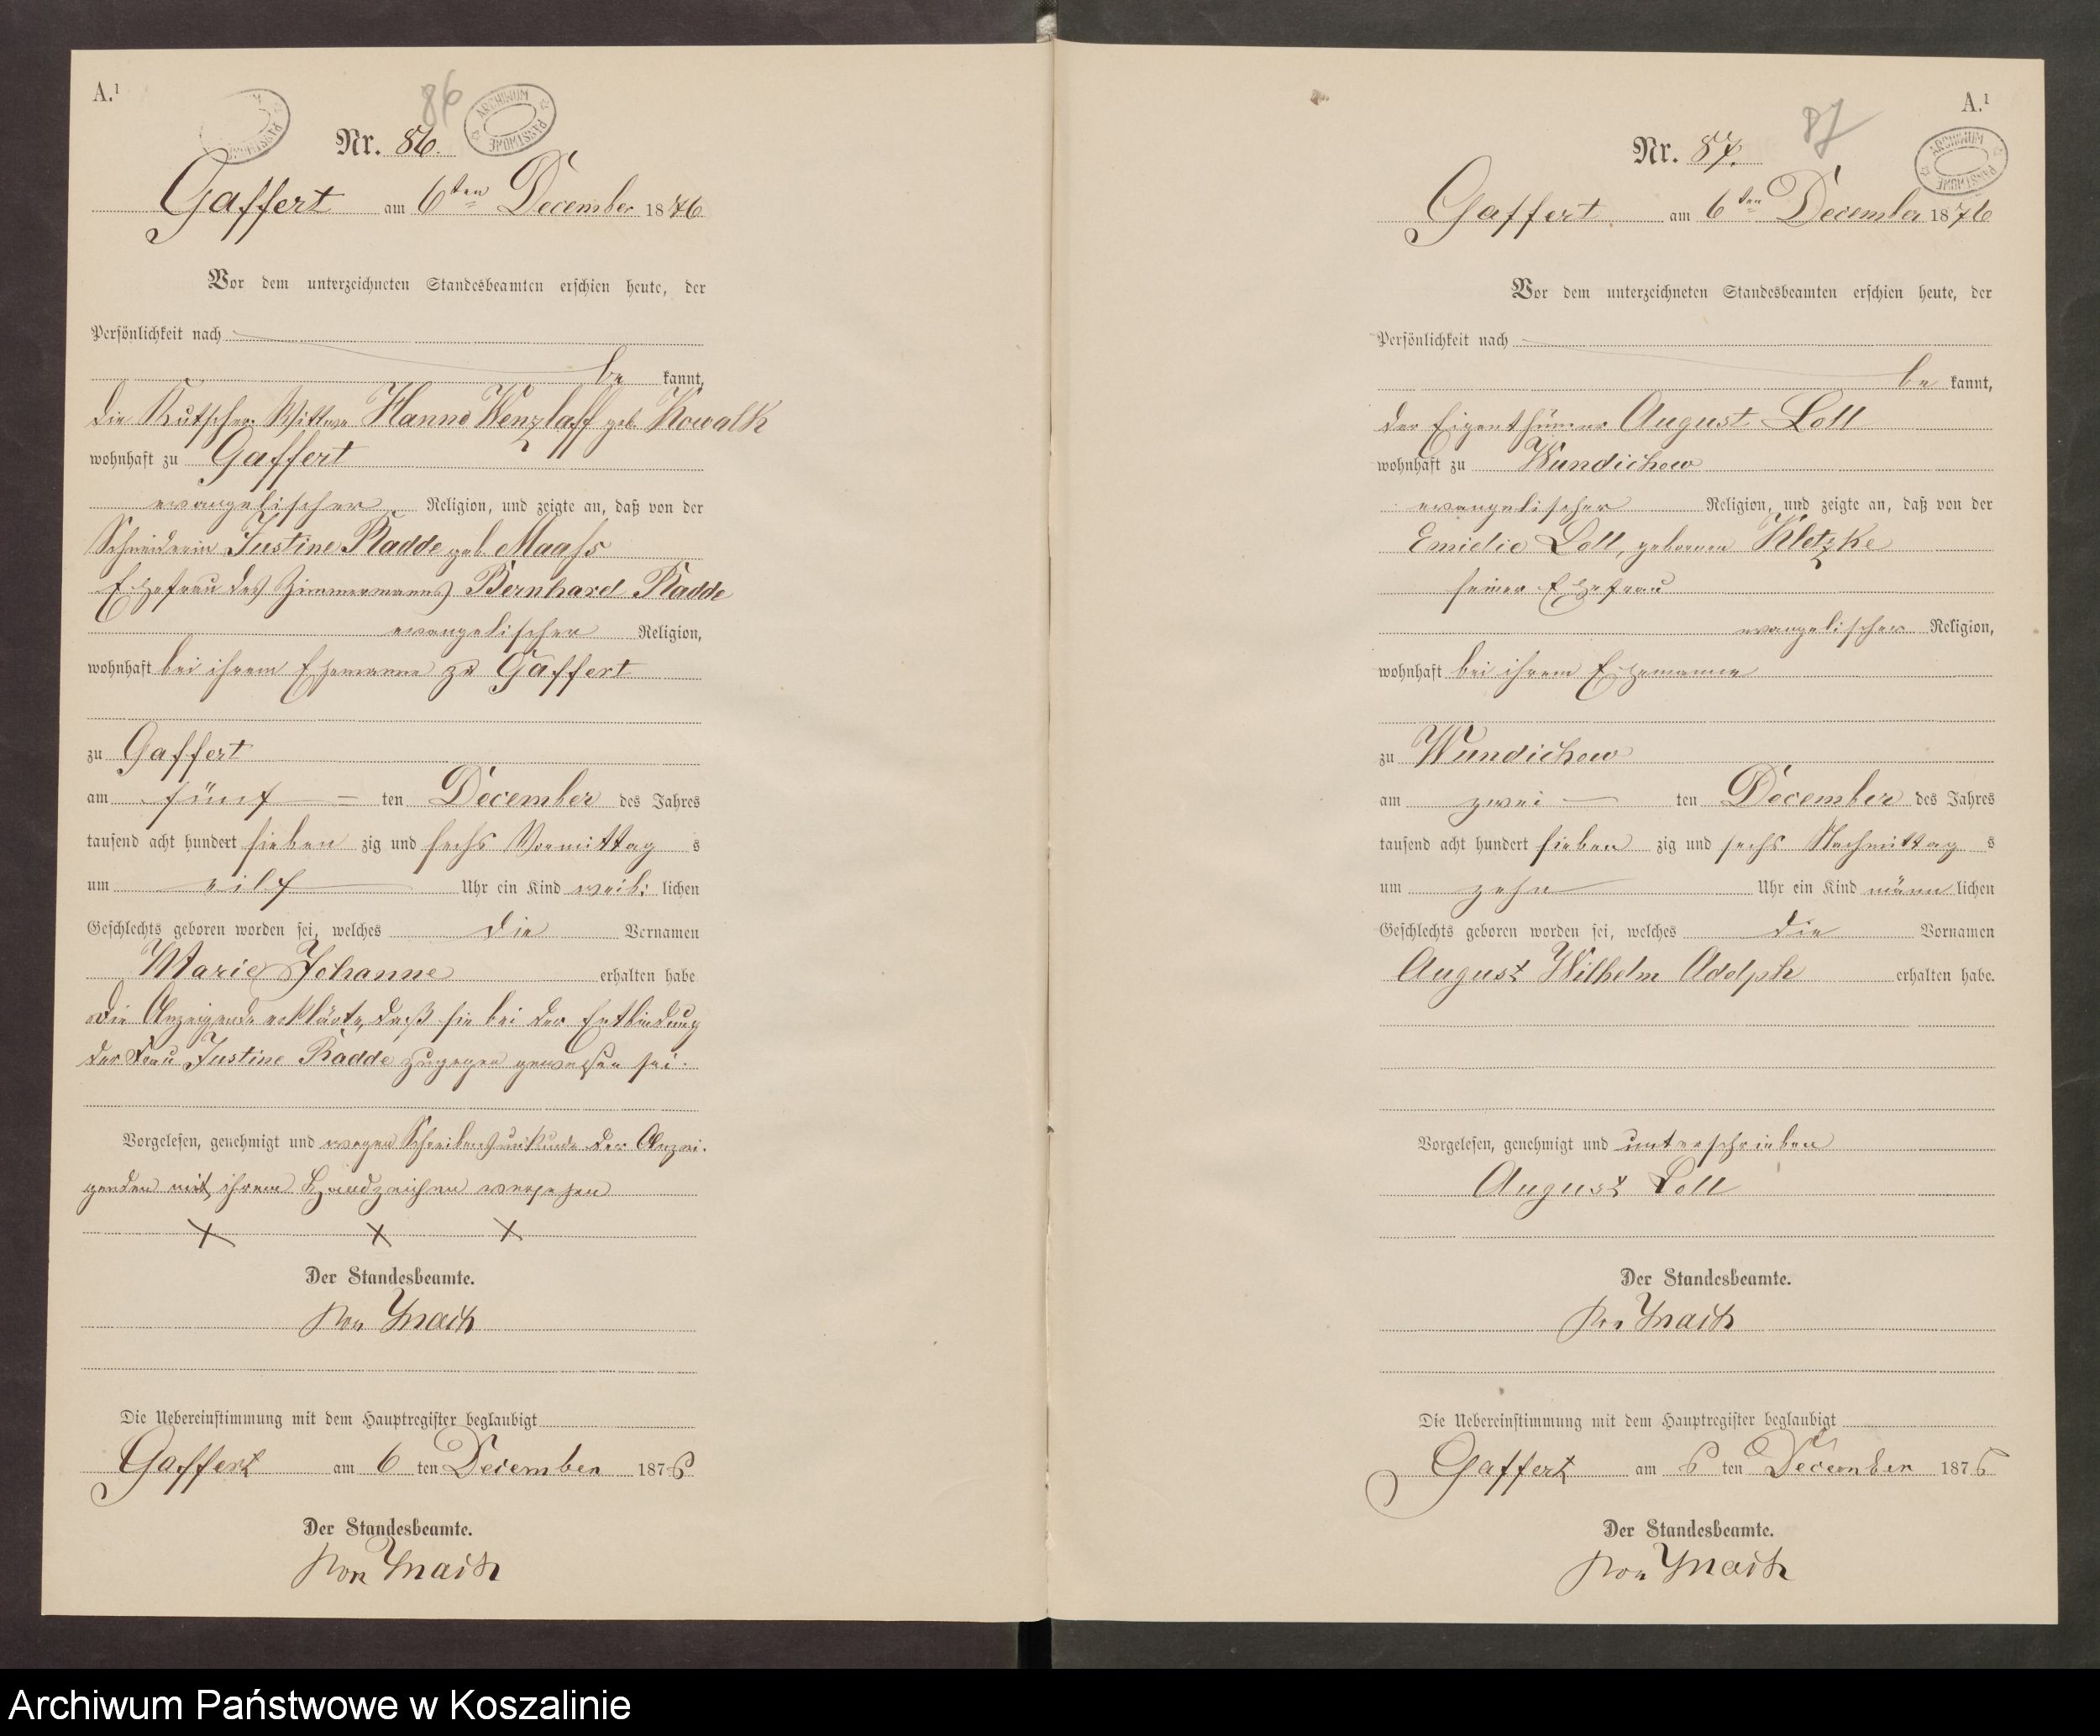 A.¹
86
ARCHIWUM PAŃSTWOWE
Nr. 86.
Gaffert am 6ten December 1876
Vor dem unterzeichneten Standesbeamten erschien heute, der
Persönlichkeit nach
be kannt,
die Kutscher Wittwe Hanne Wenzlaff geb. Kowalk
wohnhaft zu Gaffert
evangelischer Religion, und zeigte an, daß von der
Schneiderin Justine Radde geb. Maafs
Ehefrau des Zimmermanns Bernhard Radde
evangelischer Religion,
wohnhaft bei ihrem Ehemanne zu Gaffert
zu Gaffert
am fünf ten December des Jahres
tausend acht hundert sieben zig und sechs Vormittag s
um eilf Uhr ein Kind weib: lichen
Geschlechts geboren worden sei, welches die Vornamen
Marie Johanne erhalten habe
Die Anzeigende erklärte, daß sie bei der Entbindung
der Frau Justine Radde zugegen gewesen sei.
Vorgelesen, genehmigt und wegen Schreibensunkunde der Anzei-
genden mit ihrem Handzeichen versehen
X X X
Der Standesbeamte.
von
Die Uebereinstimmung mit dem Hauptregister beglaubigt
Gaffert am 6 ten December 1876
Der Standesbeamte.
von
A.¹
87
ARCHIWUM PAŃSTWOWE
Nr. 87.
Gaffert am 6ten December 1876
Vor dem unterzeichneten Standesbeamten erschien heute, der
Persönlichkeit nach
be kannt,
der Eigenthümer August Loll
wohnhaft zu Wundichow
evangelischer Religion, und zeigte an, daß von der
Emielie Loll, geborenen Kletzke
seiner Ehefrau
evangelischer Religion,
wohnhaft bei ihrem Ehemanne
zu Wundichow
am zwei ten December des Jahres
tausend acht hundert sieben zig und sechs Nachmittag s
um zehn Uhr ein Kind männ lichen
Geschlechts geboren worden sei, welches die Vornamen
August Wilhelm Adolph erhalten habe.
Vorgelesen, genehmigt und unterschrieben
August Loll
Der Standesbeamte.
von
Die Uebereinstimmung mit dem Hauptregister beglaubigt
Gaffert am 6 ten December 1876
Der Standesbeamte.
von
Archiwum Państwowe w Koszalinie